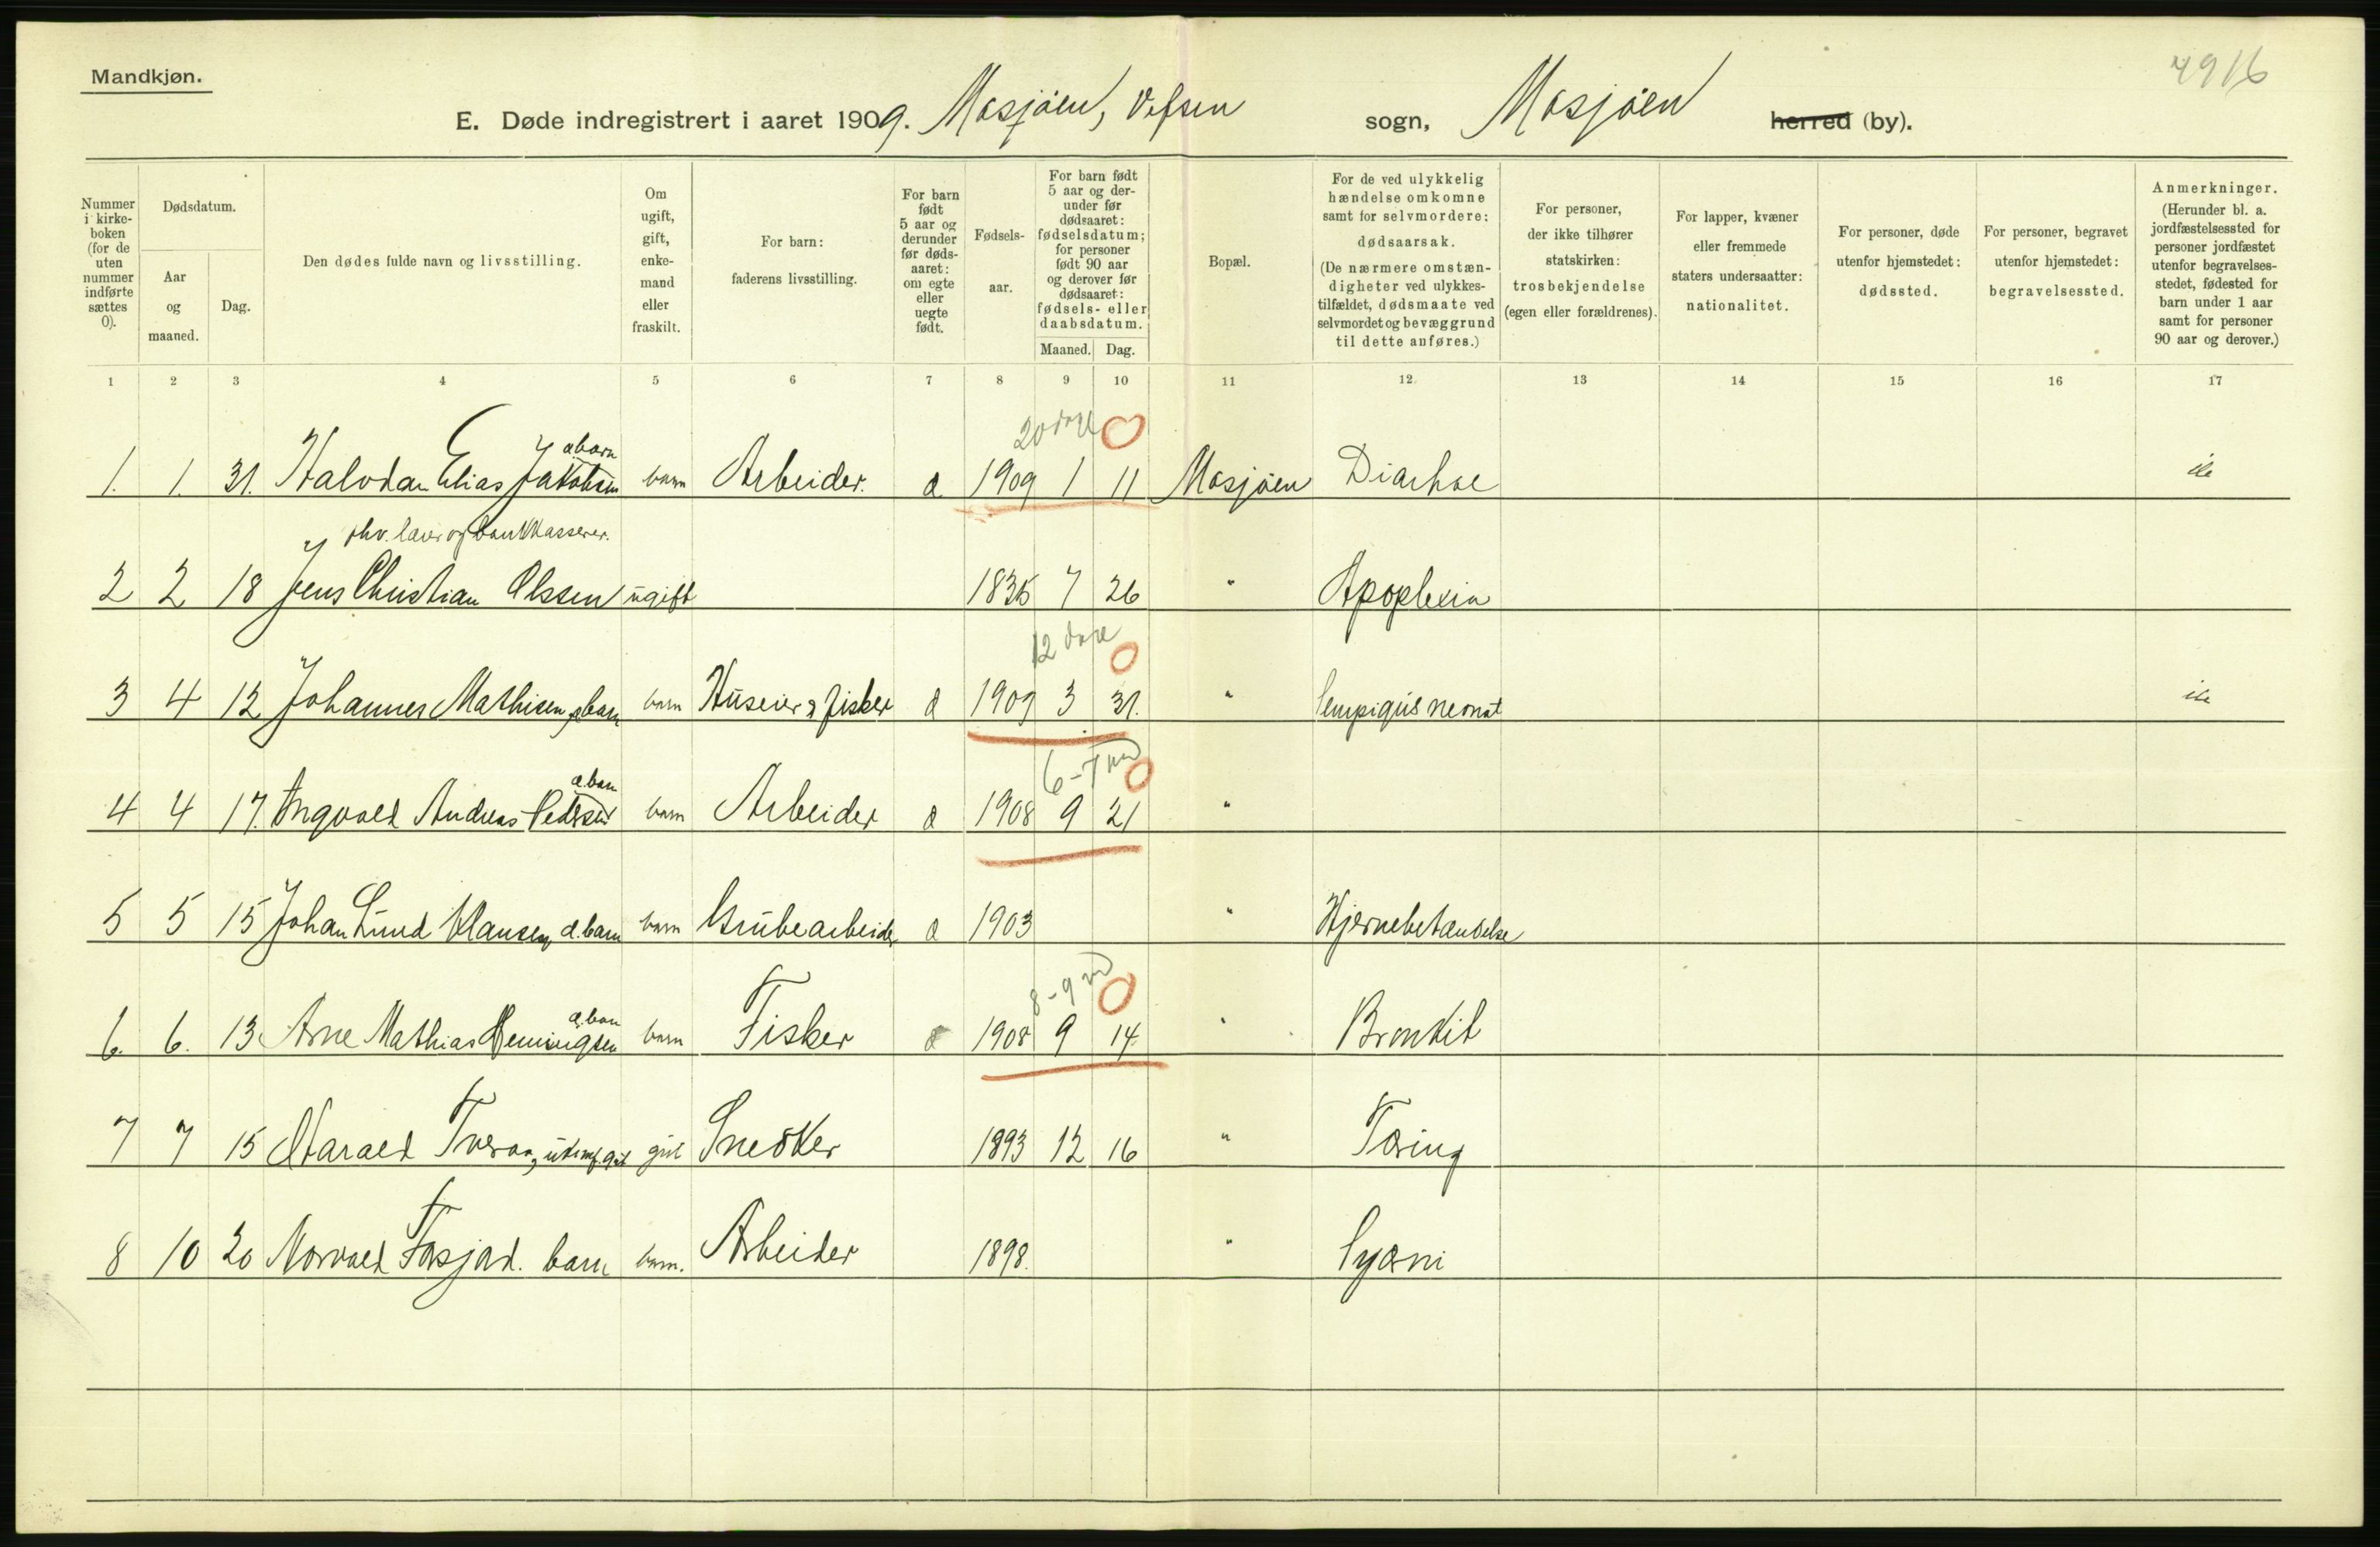 Mandkjøn.
4916
E. Døde indregistrert i aaret 1909. Mosjøen, Vefsen sogn, Mosjøen herred (by).
Nummer i kirke- boken (for de uten nummer indførte sættes 0).
Dødsdatum.
Aar og maaned.
Dag.
Den dødes fulde navn og livsstilling.
Om ugift, gift, enke- mand eller fraskilt.
For barn: faderens livsstilling.
For barn født 5 aar og derunder før døds- aaret: om egte eller uegte født.
Fødsels- aar.
For barn født 5 aar og der- under før dødsaaret: fødselsdatum; for personer født 90 aar og derover før dødsaaret: fødsels- eller daabsdatum.
Maaned. Dag.
Bopæl.
For de ved ulykkelig hændelse omkomne samt for selvmordere: dødsaarsak. (De nærmere omstæn- digheter ved ulykkes- tilfældet, dødsmaate ved selvmordet og bevæggrund til dette anføres.)
For personer, der ikke tilhører statskirken: trosbekjendelse (egen eller forældrenes).
For lapper, kvæner eller fremmede staters undersaatter: nationalitet.
For personer, døde utenfor hjemstedet: dødssted.
For personer, begravet utenfor hjemstedet: begravelsessted.
Anmerkninger. (Herunder bl. a. jordfæstelsessted for personer jordfæstet utenfor begravelses- stedet, fødested for barn under 1 aar samt for personer 90 aar og derover.)
1 2 3 4 5 6 7 8 9 10 11 12 13 14 15 16 17
20 dage
æ.barn
1. 1. 31. Halvdan Elias Jakobsen barn Arbeider. æ 1909 1 11 Mosjøen Diarhoe
fhv. lærer og bankkasserer.
2 2 18 Jens Christian Olssen ugift 1835 7 26 " Apoplexia
12 dage
3 4 12 Johannes Mathisen, æ.barn barn Huseier & fisker æ 1909 3 31. " Pempigus neonat
6-7 md
æ.barn
4 4 17. Ingvald Andreas Pedersen barn Arbeider æ 1908 9 21 "
5 5 15 Johan Lund Klausen, æ.barn barn Grubearbeider æ 1903 " Hjernebetændelse
8-9 md
æ.barn
6. 6. 13 Arne Mathias Hemingsen barn Fisker æ 1908 9 14 " Bronkit
7 7 15 Harald Tveraa, gut Snedker 1893 12 16 " Tæring
8 10 20 Norvald Fosjord. barn barn. Arbeider 1898. " Lyæmi